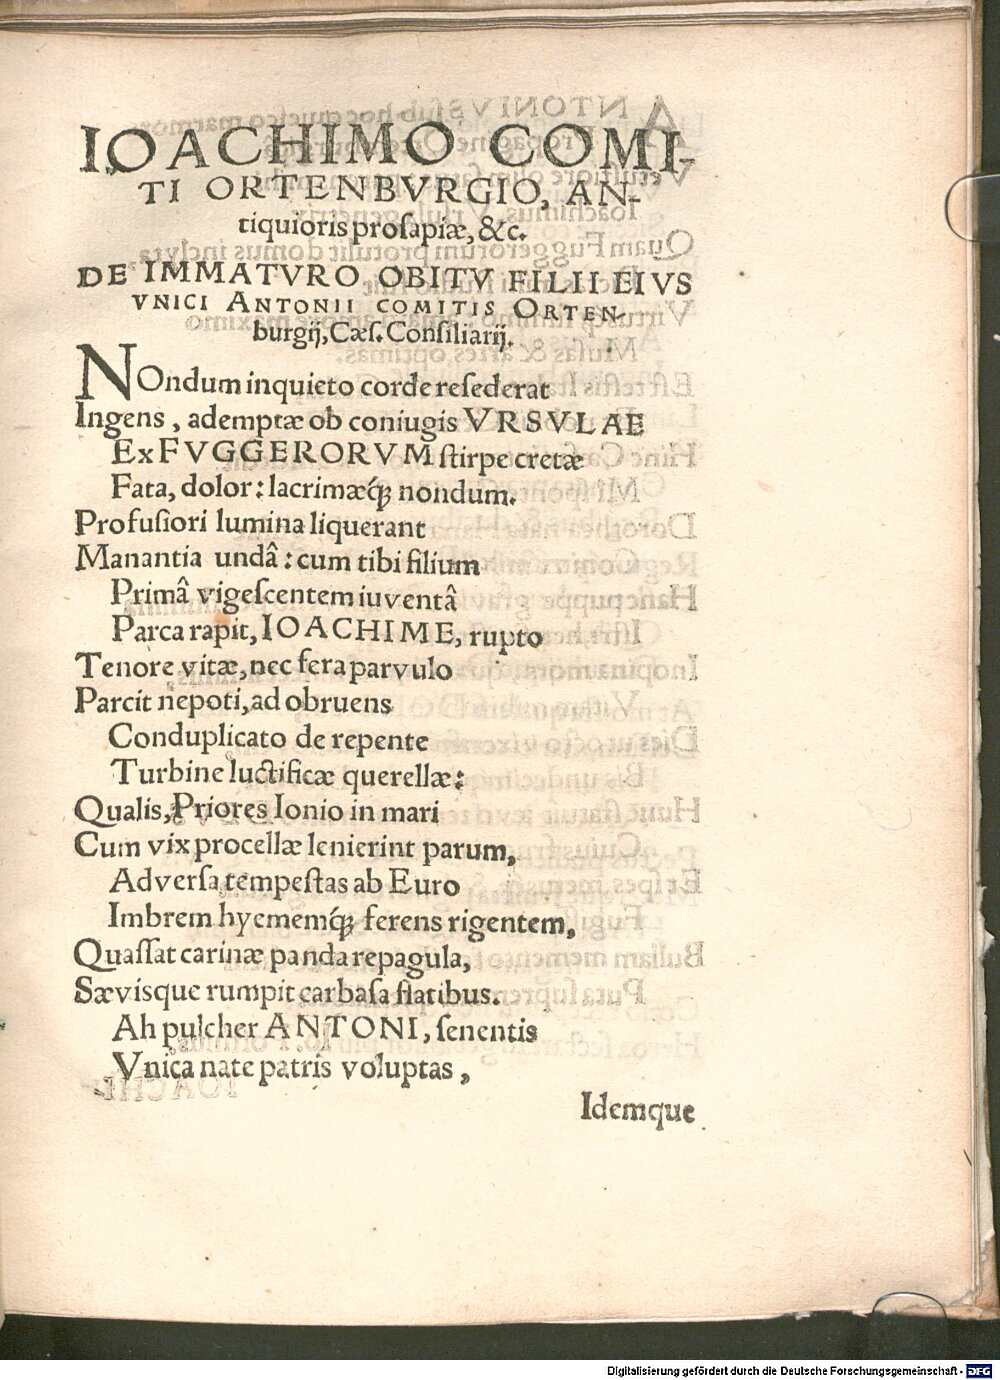 IOACHIMO COMI-
TI ORTENBVRGIO, AN-
tiquioris prosapiæ, &c.
DE IMMATVRO OBITV FILII EIVS
VNICI ANTONII COMITIS ORTEN-
burgij, Cæs. Consiliarij.
NOndum inquieto corde resederat
Ingens, ademptæ ob coniugis VRSVLAE
Ex FVGGERORVM stirpe cretæ
Fata, dolor: lacrimæq́; nondum.
Profusiori lumina liquerant
Manantia undâ: cum tibi filium
Primâ vigescentem iuventâ
Parca rapit, IOACHIME, rupto
Tenore vitæ, nec fera parvulo
Parcit nepoti, ad obruens
Conduplicato de repente
Turbine luctificæ querellæ:
Qualis, Priores Ionio in mari
Cum vix procellæ lenierint parum,
Adversa tempestas ab Euro
Imbrem hyememq́; ferens rigentem,
Quassat carinæ panda repagula,
Sævisque rumpit carbasa flatibus.
Ah pulcher ANTONI, senentis
Vnica nate patris voluptas,
Idemque
Digitalisierung gefördert durch die Deutsche Forschungsgemeinschaft - DFG